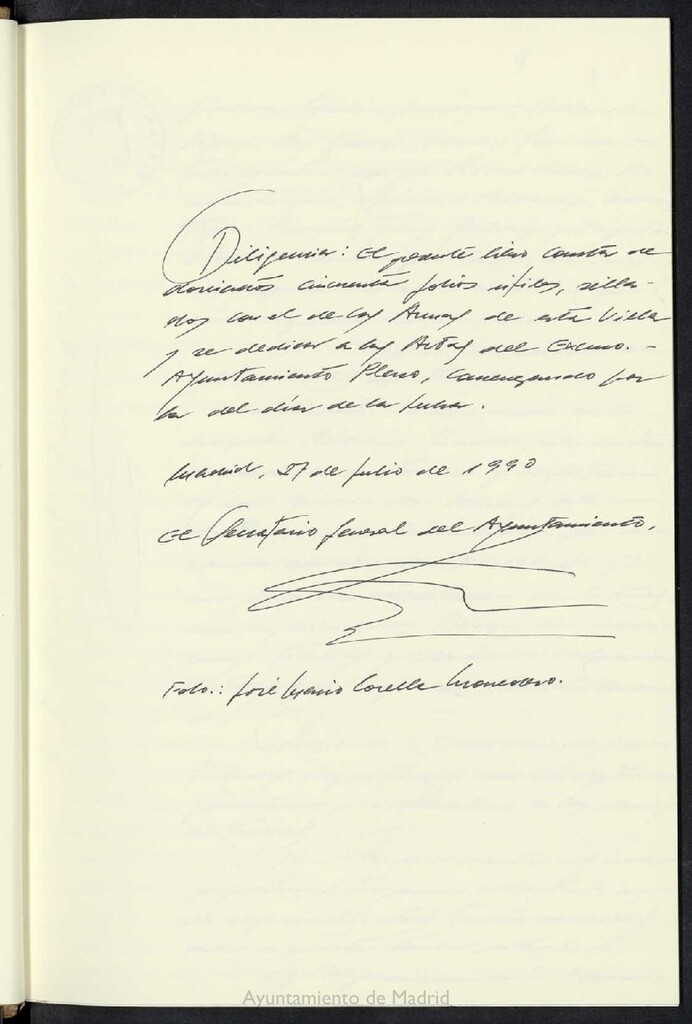 Diligencia: El presente libro consta de
doscientos cincuenta folios útiles, sella-
dos con el de las Armas de esta Villa
y se dedica a las Actas del Excmo.-
Ayuntamiento Pleno, comenzando por
la del día de la fecha.
Madrid, 27 de Julio de 1990
El Secretario General del Ayuntamiento,
Fdo.: José Mario Corella Monedero.
Ayuntamiento de Madrid